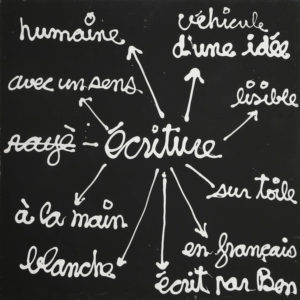 humaine
véhicule
d'une idée
avec un sens
lisible
rayé - écriture
sur toile
à la main
en français
blanche
écrit par Ben